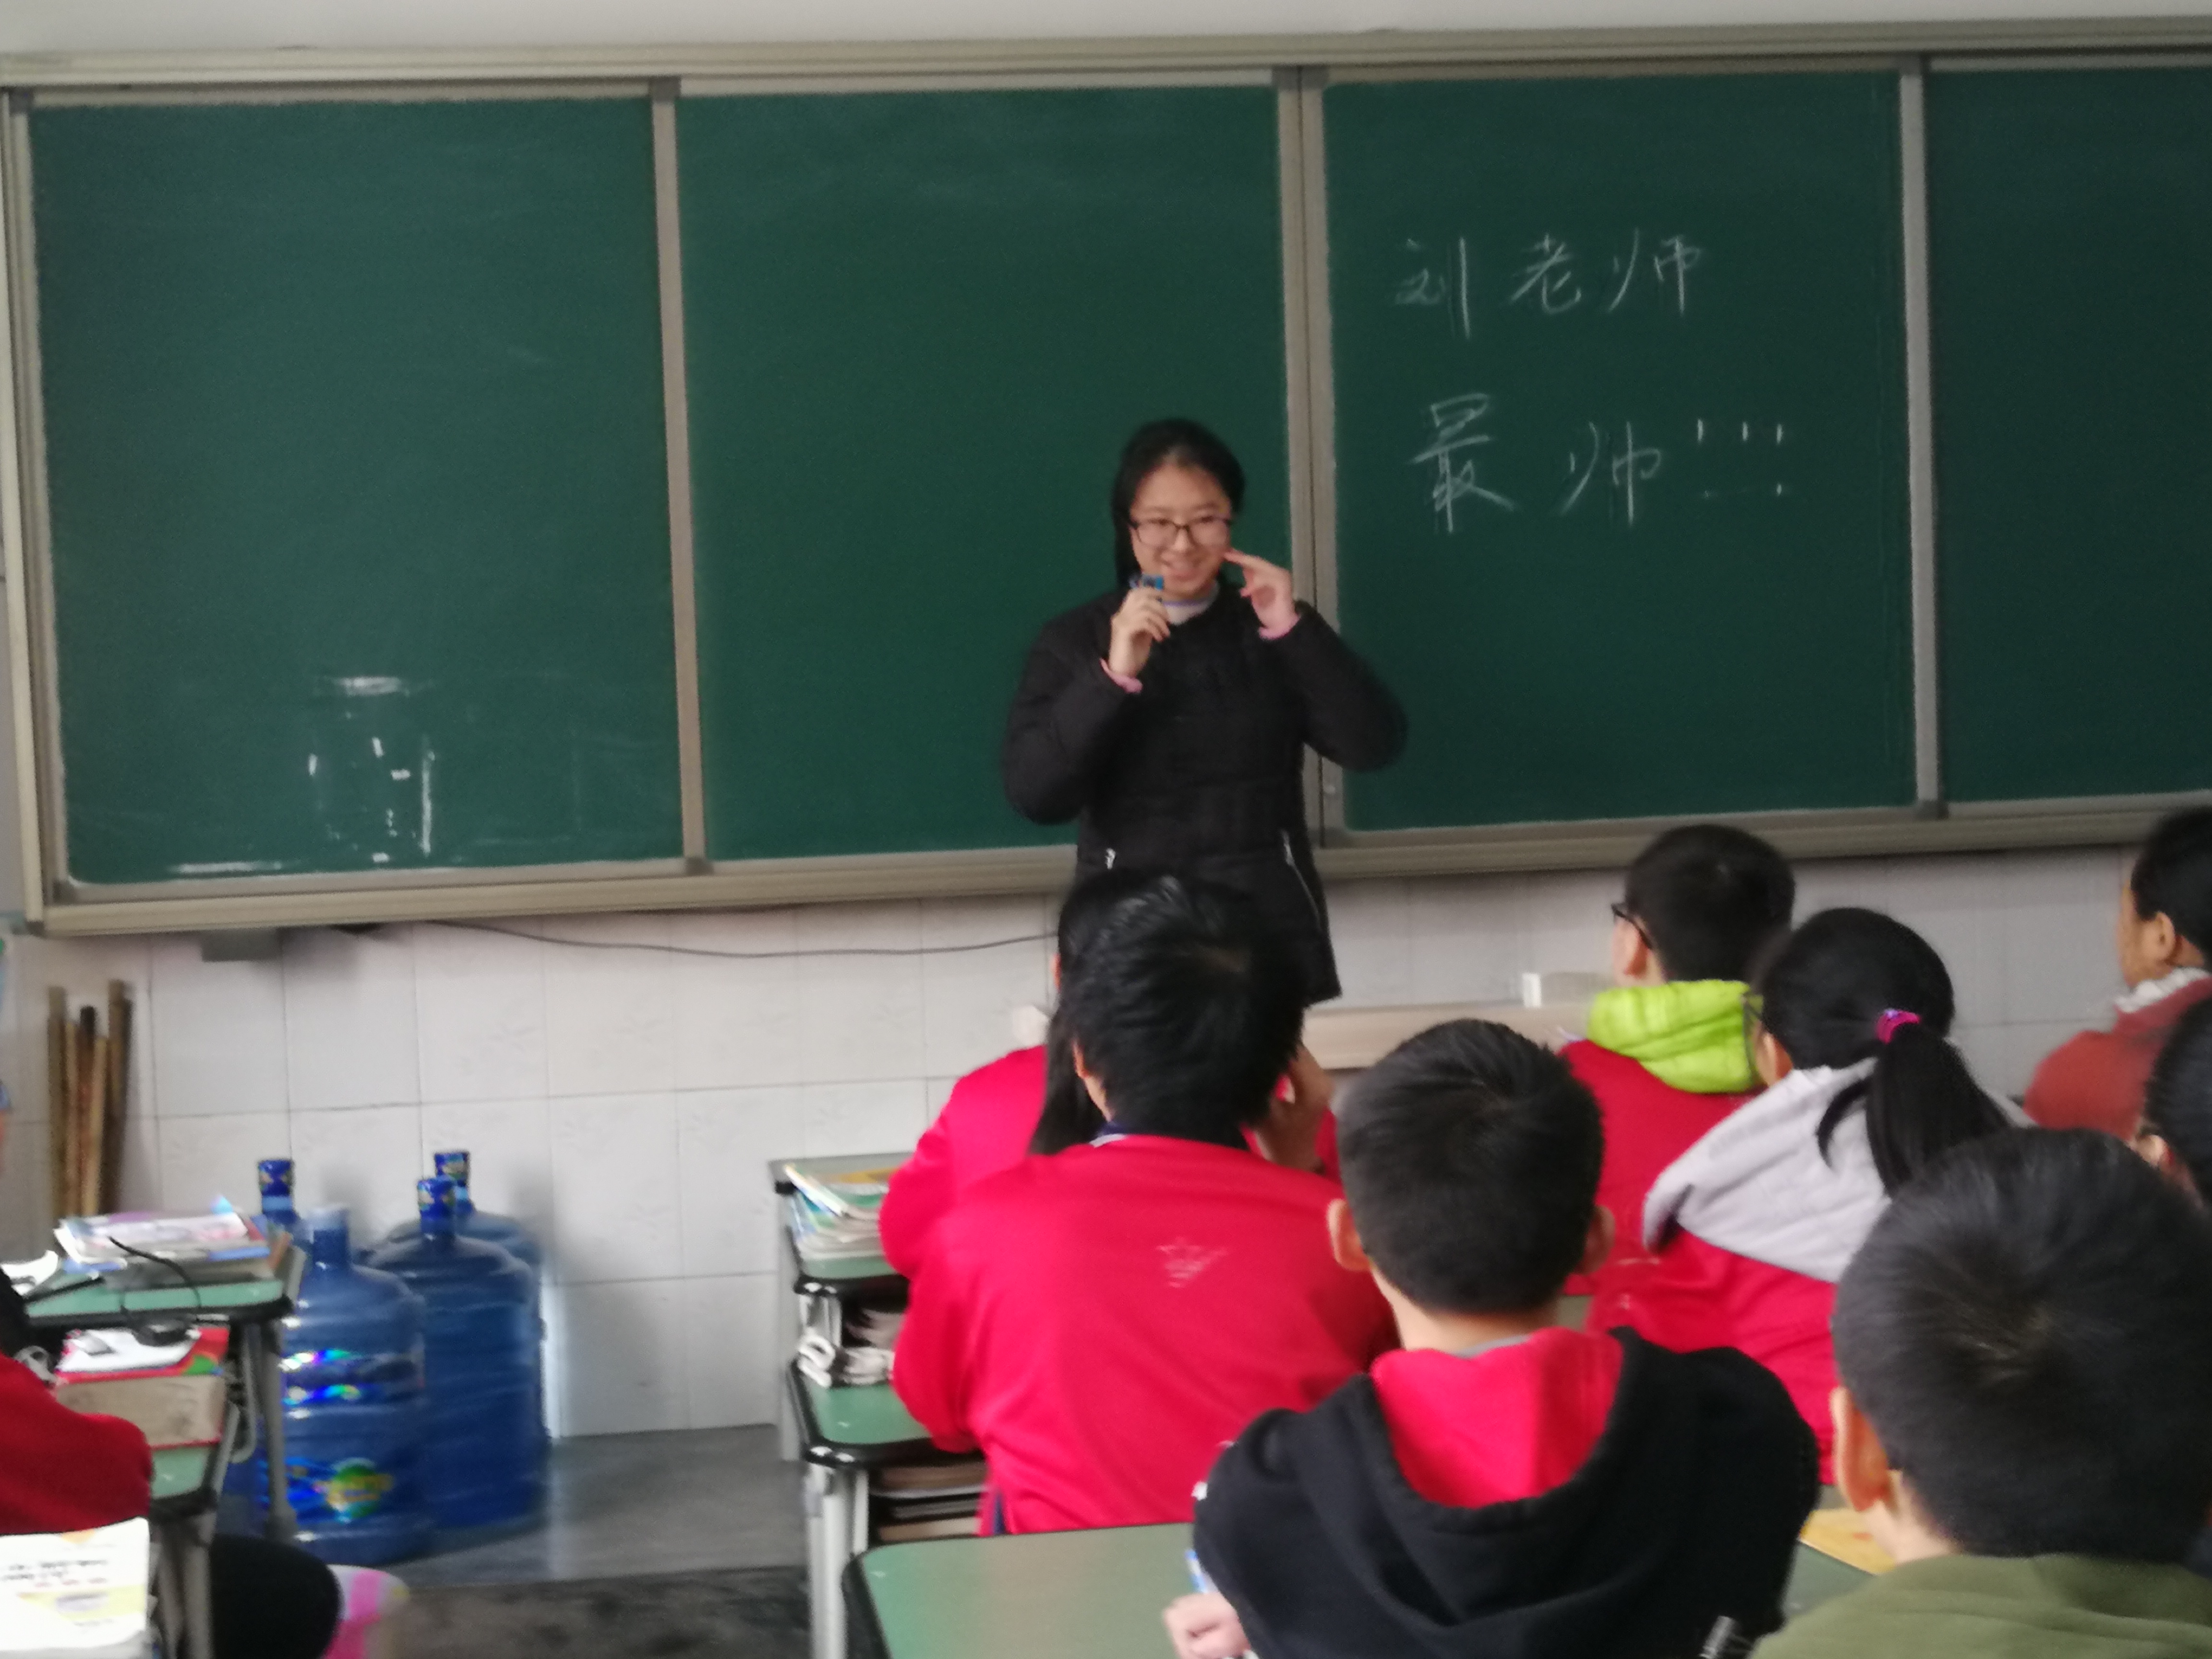 刘老师
最帅!!!